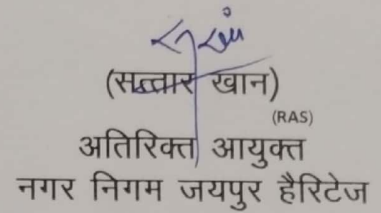 (सत्तार खान)
(RAS)
अतिरिक्त आयुक्त
नगर निगम जयपुर हैरिटेज